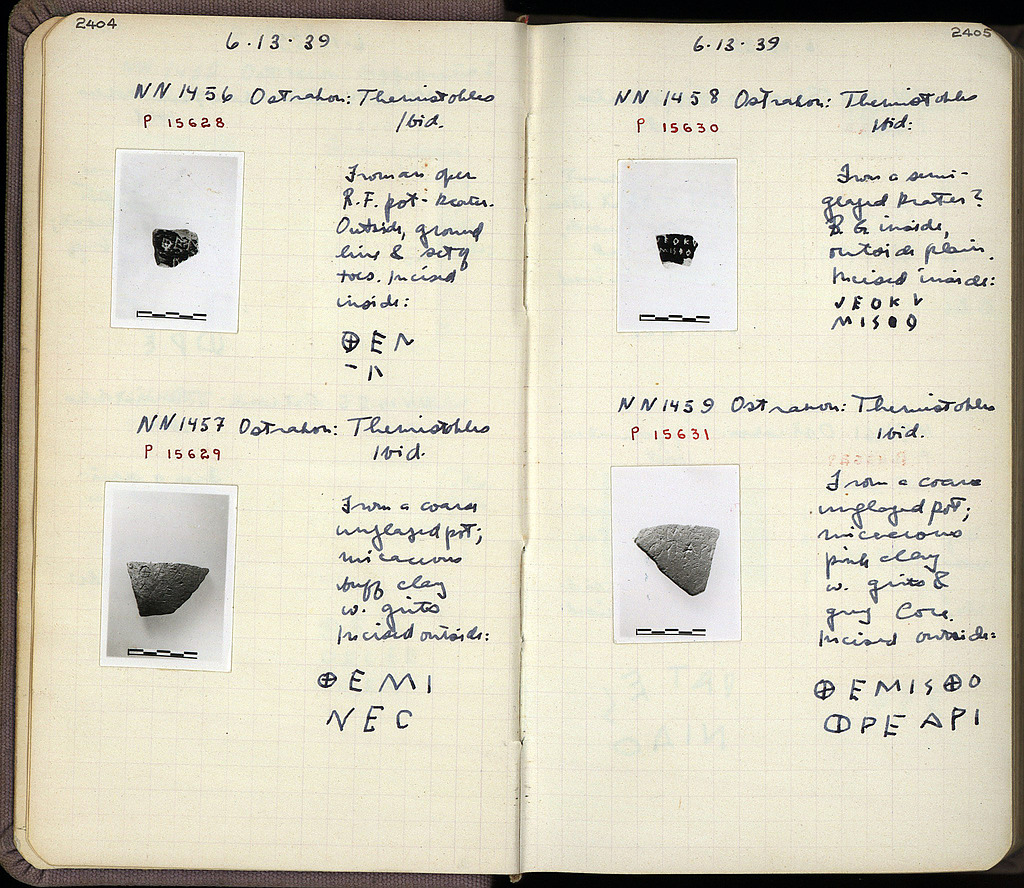 2404
6·13·39
NN 1456 Ostrakon: Themistokles
P 15628
Ibid.
From an open
R.F. pot - krater.
Outside, ground
line & set of
toes. Incised
inside:
⊕ E N
NN 1457 Ostrakon: Themistokles
P 15629
Ibid.
From a coarse
unglazed pot;
micaceous
buff clay
w. grits
Incised outside:
⊕ E M I
N E C
2405
6·13·39
NN 1458 Ostrakon: Themistokles
P 15630
Ibid:
From a semi-
glazed krater?
B G inside,
outside plain.
Incised inside:
M I S O O
NN 1459 Ostrakon: Themistokles
P 15631
Ibid.
From a coarse
unglazed pot;
micaceous
pink clay
w. grits &
grey core.
Incised outside:
⊕ E M I S ⊕ O
Φ P E A P I